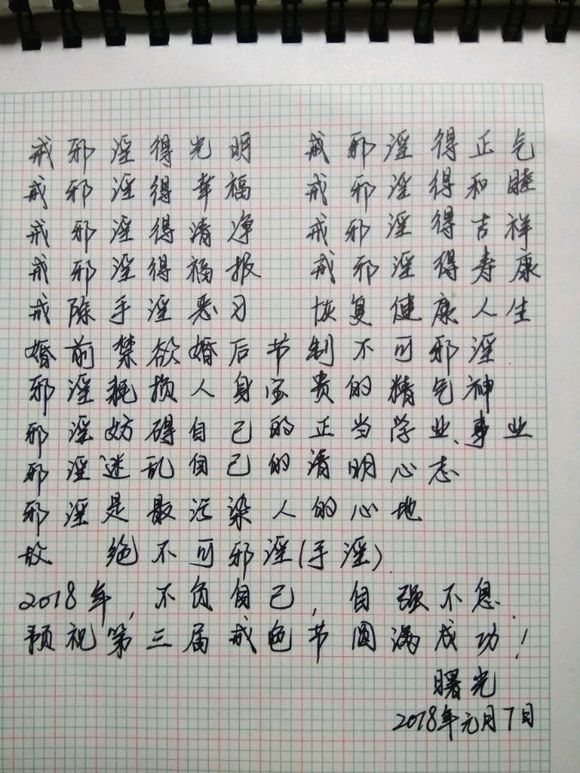 戒邪淫得光明 戒邪淫得正气
戒邪淫得幸福 戒邪淫得和睦
戒邪淫得清净 戒邪淫得吉祥
戒邪淫得福报 戒邪淫得寿康
戒除手淫恶习 恢复健康人生
婚前禁欲婚后节制不可邪淫
邪淫耗损人身宝贵的精气神
邪淫妨碍自己的正当学业、事业
邪淫迷乱自己的清明心志
邪淫是最污染人的心地
故 绝不可邪淫(手淫)
2018年,不负自己,自强不息.
预祝第三届戒色节圆满成功!
曙光
2018年元月7日